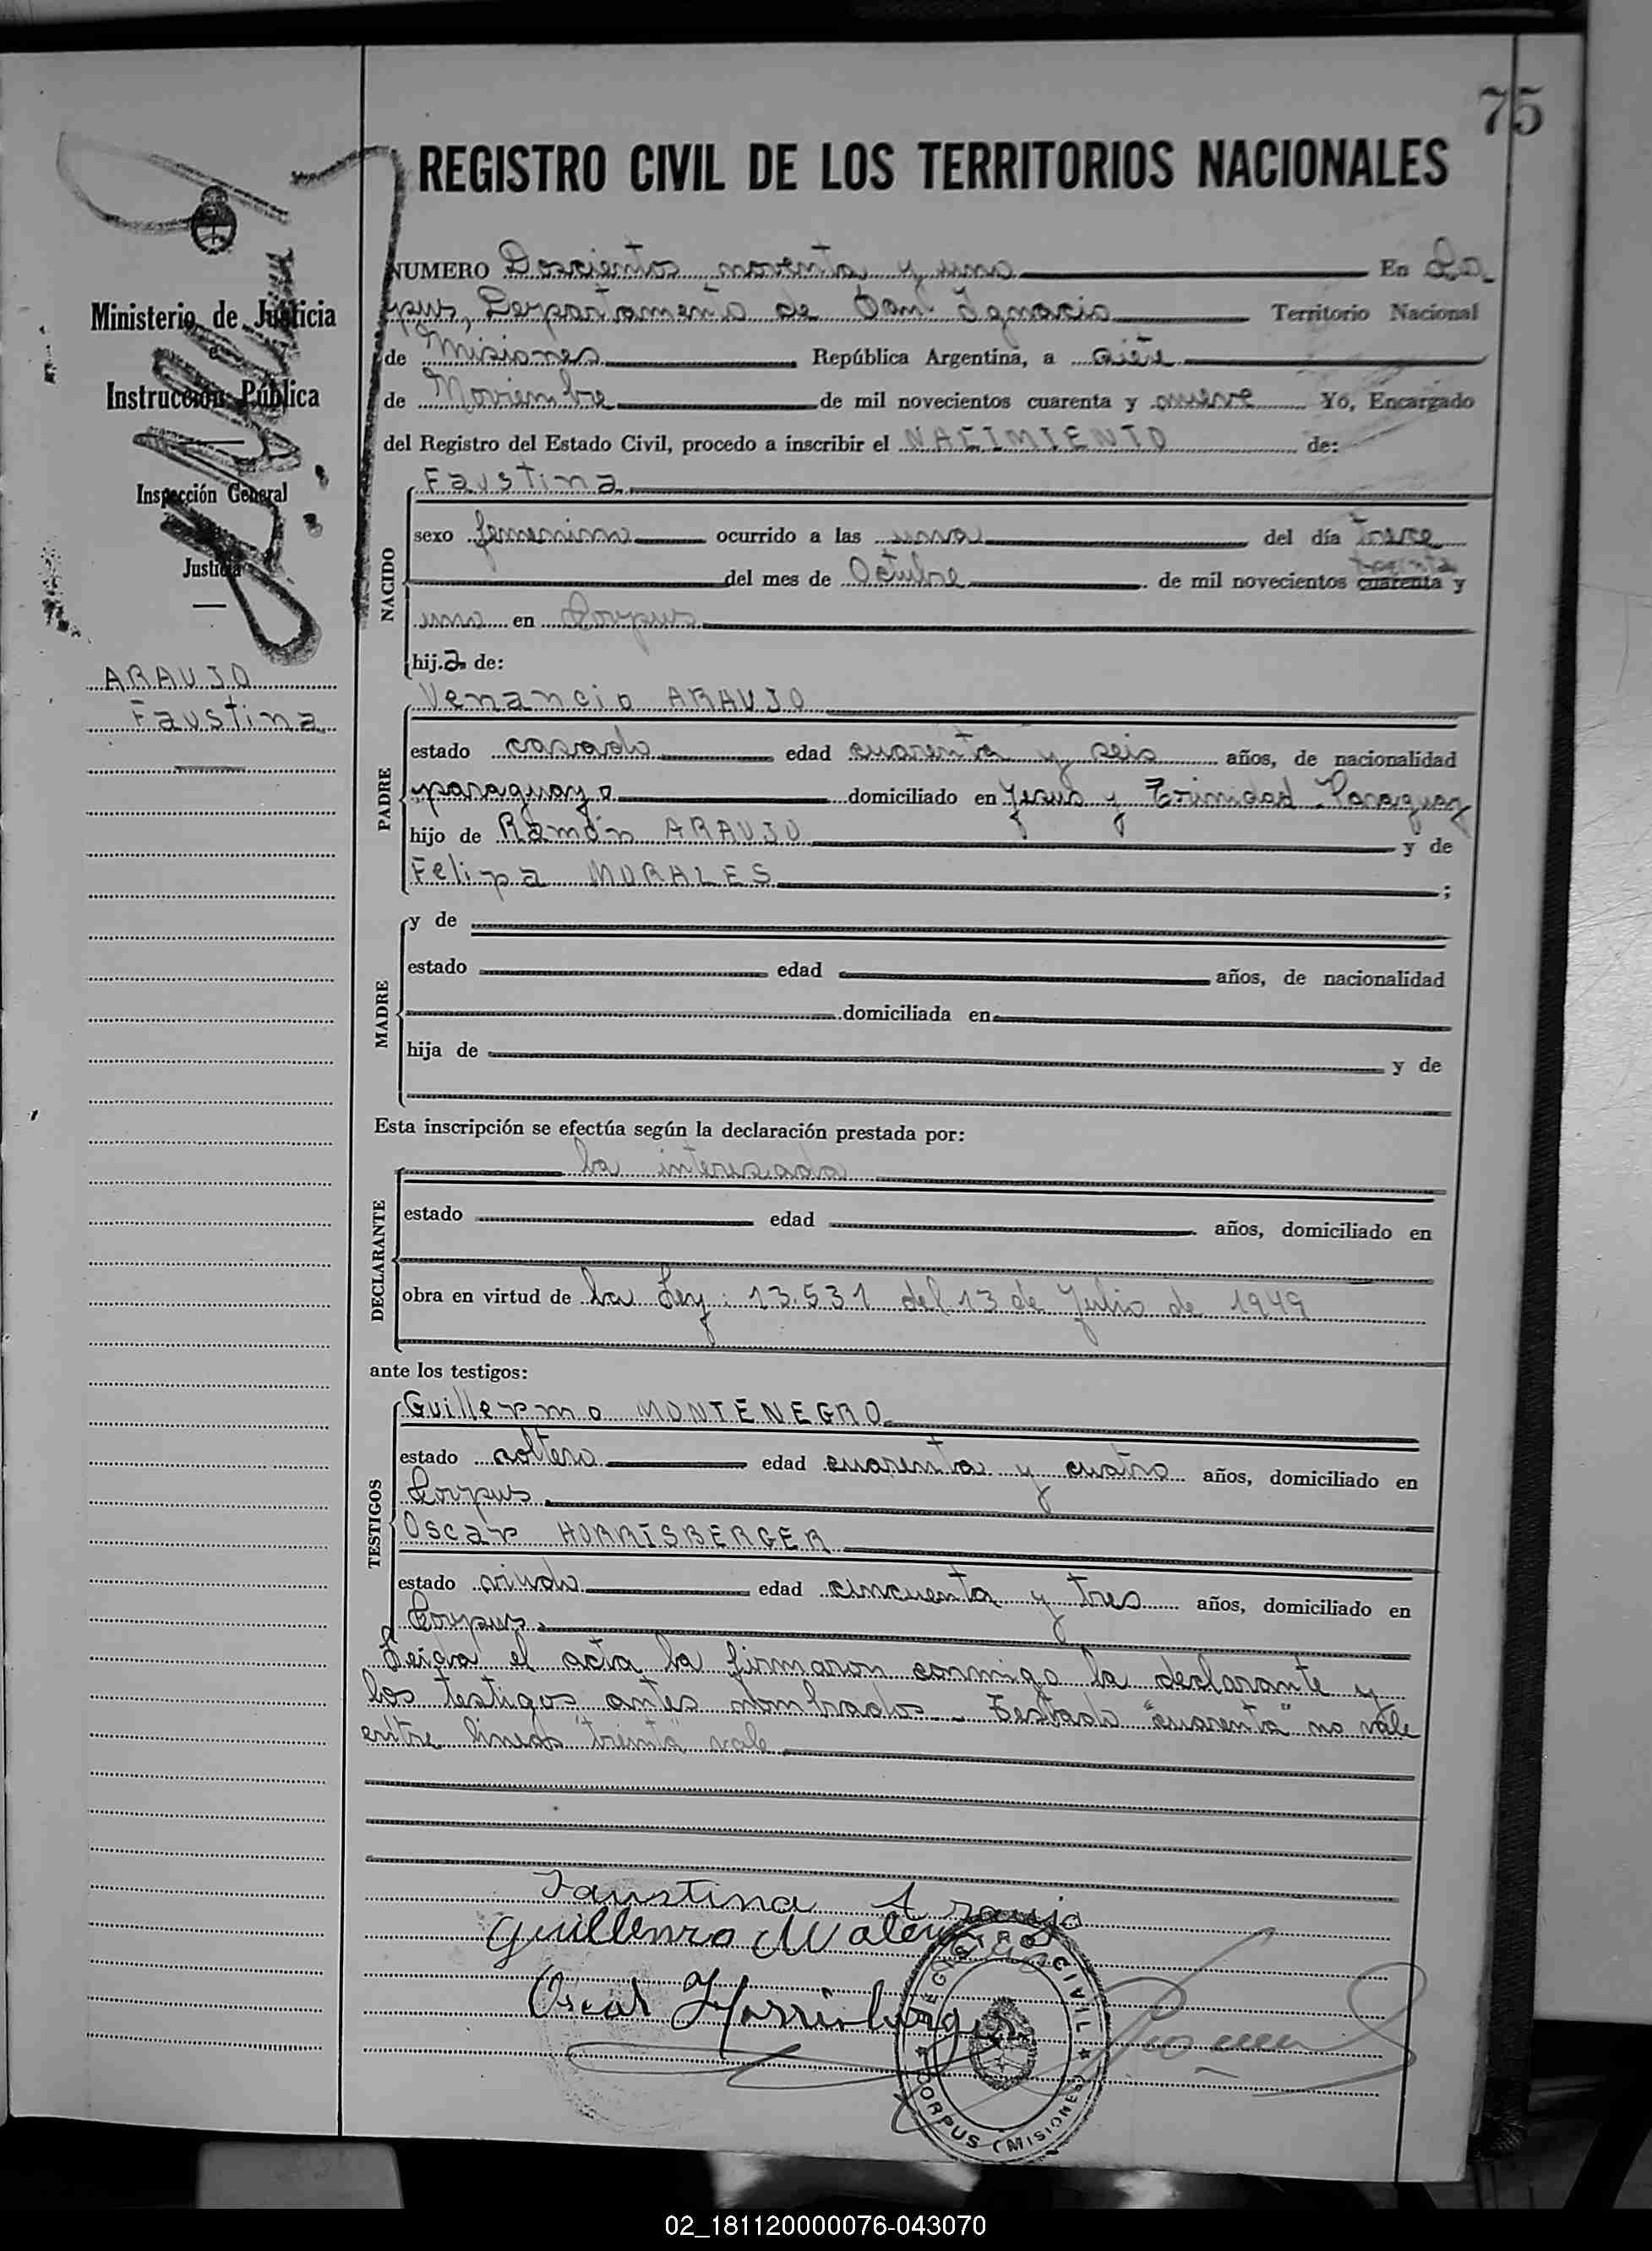 75
REGISTRO CIVIL DE LOS TERRITORIOS NACIONALES
Ministerio de Justicia
e
Instrucción Pública
Inspección General
Justicia
ARAUJO
Faustina
NUMERO Doscientos noventa y uno En Co-
pus, Departamento de San Ignacio Territorio Nacional
de Misiones República Argentina, a siete
de Noviembre de mil novecientos cuarenta y nueve Yo, Encargado
del Registro del Estado Civil, procedo a inscribir el NACIMIENTO de:
NACIDO
Faustina
sexo femenino ocurrido a las una del día trece
treinta
del mes de Octubre de mil novecientos cuarenta y
uno en Corpus
hija de:
PADRE
Venancio ARAUJO
estado casado edad cuarenta y seis años, de nacionalidad
paraguayo domiciliado en Jesus y Trinidad Paraguay
hijo de Ramón ARAUJO y de
Felipa MORALES ;
MADRE
y de
estado edad años, de nacionalidad
domiciliada en
hija de y de
Esta inscripción se efectúa según la declaración prestada por:
DECLARANTE
la interesada
estado edad años, domiciliado en
obra en virtud de la Ley: 13.531 del 13 de Julio de 1949
ante los testigos:
TESTIGOS
Guillermo MONTENEGRO
estado soltero edad cuarenta y cuatro años, domiciliado en
Corpus
Oscar HORRISBERGER
estado viudo edad cincuenta y tres años, domiciliado en
Corpus.
Leida el acta la firmaron conmigo la declarante y
los testigos antes nombrados - Testado "cuarenta" no vale
entre lineas "treinta" vale
Faustina Araujo
Guillermo
Oscar Horrisberger
REGISTRO CIVIL
CORPUS (MISIONES)
02_181120000076-043070